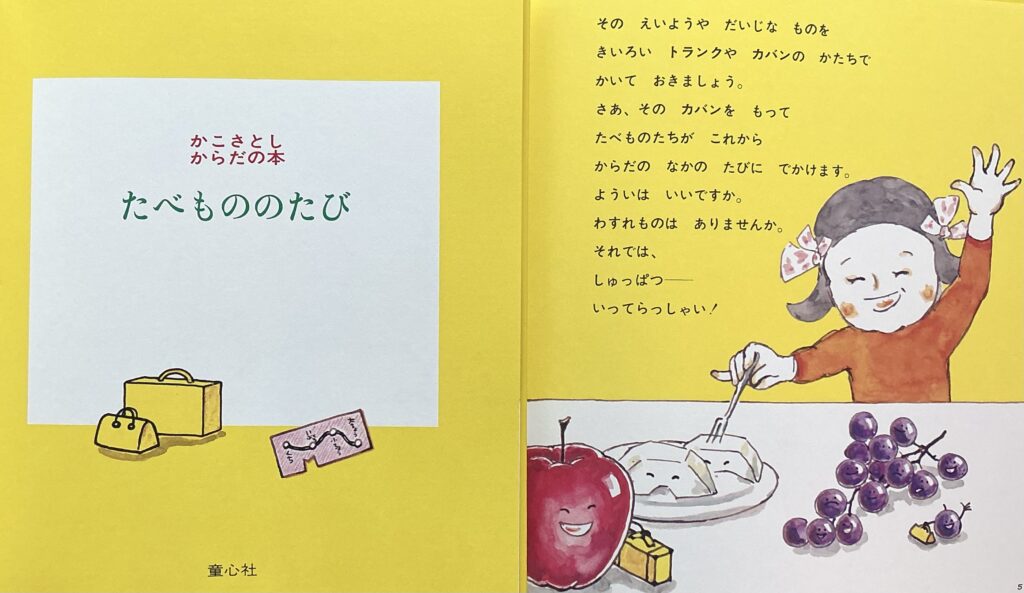 かこさとし
からだの本
たべもののたび
童心社
その えいようや だいじな ものを
きいろい トランクや カバンの かたちで
かいて おきましょう。
さあ、その カバンを もって
たべものたちが これから
からだの なかの たびに でかけます。
よういは いいですか。
わすれものは ありませんか。
それでは、
しゅっぱつ――
いってらっしゃい!
5